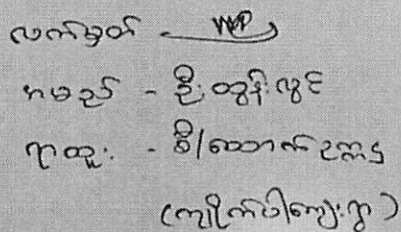 လက်မှတ် -
အမည် - ဦးထွန်းလွင်
ရာထူး - စီ/ထောက်ဥက္ကဌ
(ကျိုက်ပါကျေးရွာ)